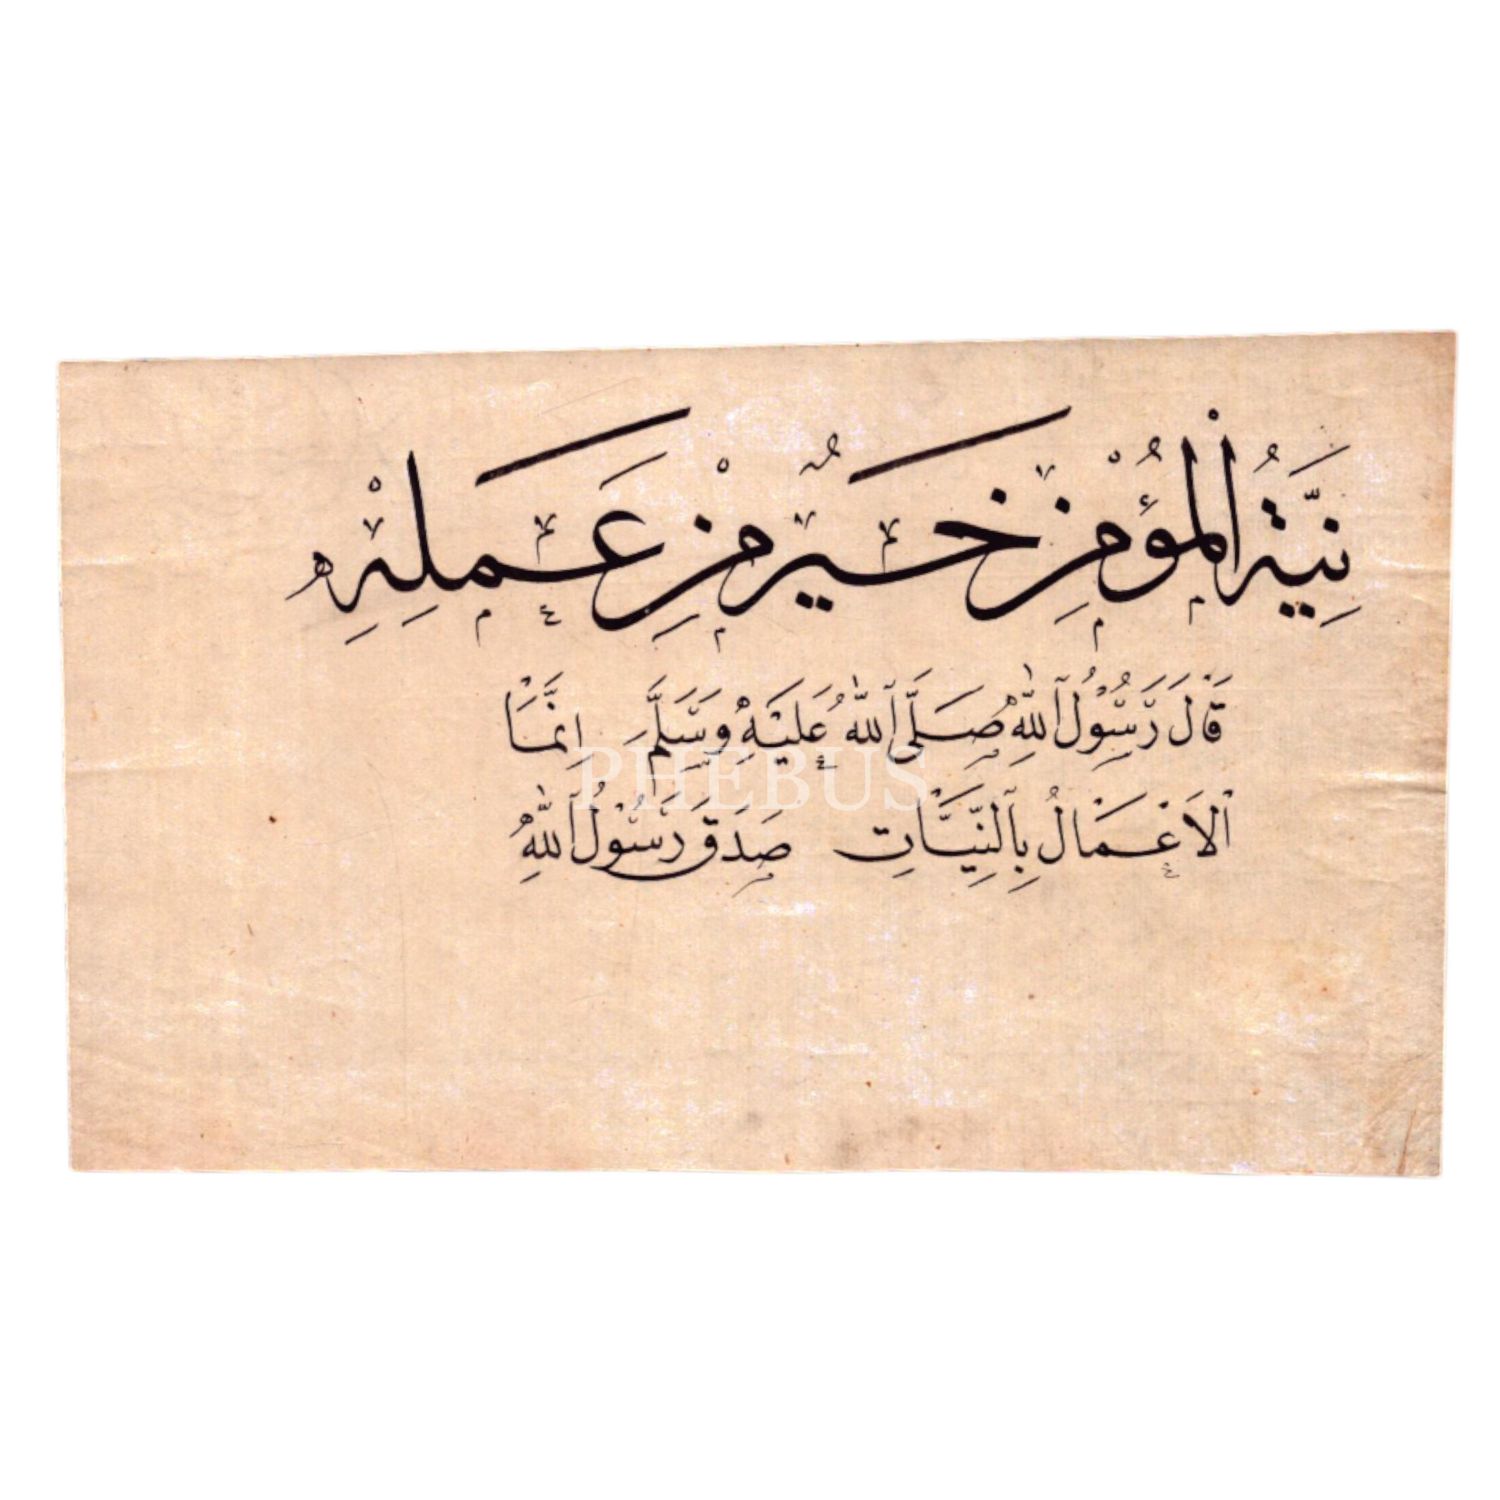 نِيَّةُ الْمُؤْمِنْ خَيْرٌ مِنْ عَمَلِهِ
قَالَ رَسُولُ اللهِ صَلَّى اللهُ عَلَيْهِ وَسَلَّمَ اِنَّمَا
PHEBUS
الْاَعْمَالُ بِالنِّيَّاتِ صَدَقَ رَسُولُ اللهِ